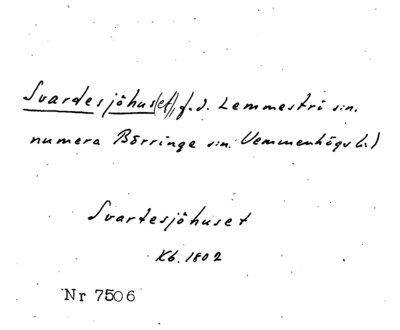 Svardesjöhus(et), f.d. Lemmeströ sn.
numera Börringe sn. Vemmenhögs h.)
Svartesjöhuset
Kb. 1802
Nr 7506